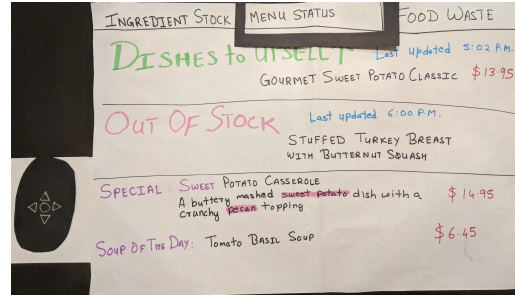 INGREDIENT STOCK
MENU STATUS
FOOD WASTE
DISHES to UPSELL
Last updated 5:02 P.M.
GOURMET SWEET POTATO CLASSIC $13.95
OUT OF STOCK
Last updated 6:00 P.M.
STUFFED TURKEY BREAST
WITH BUTTERNUT SQUASH
SPECIAL: SWEET POTATO CASSEROLE
A buttery mashed sweet potato dish with a $14.95
crunchy pecan topping
SOUP OF THE DAY: TOMATO BASIL SOUP $6.45